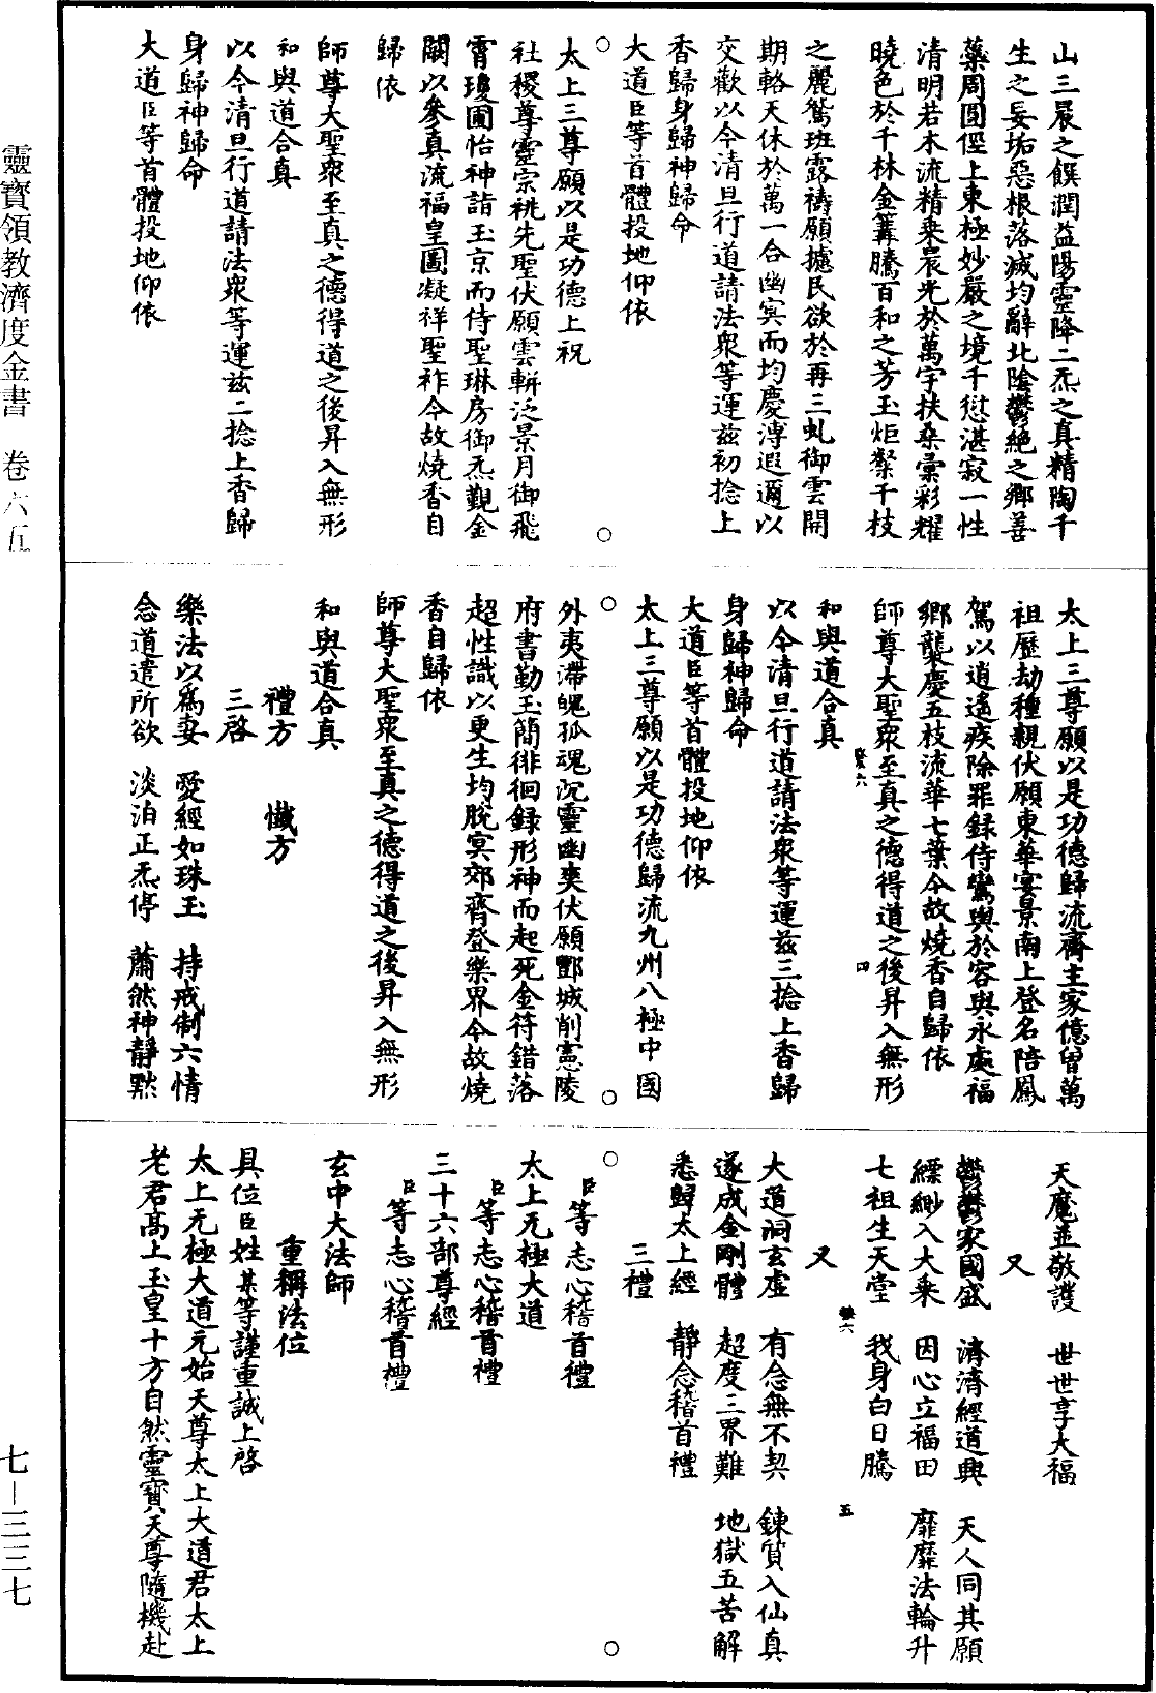 山三晨之饌潤益陽靈降二炁之真精陶千
生之妄垢惡根落滅均辭北陰鬱絕之鄉善
藥周圓俓上東極妙嚴之境千愆湛寂一性
清明若木流精乘晨光於萬宇扶桑彙彩耀
曉色於千林金篝騰百和之芳玉炬粲千枝
之麗鴛班露禱願攄民欲於再三虬御雲開
期輅天休於萬一合幽冥而均慶溥遐邇以
交歡以今清旦行道請法衆等運兹初捻上
香歸身歸神歸命
大道臣等首體投地仰依
太上三尊願以是功德上祝
社稷尊靈宗祧先聖伏願雲軿泛景月御飛
霄瓊圃怡神詣玉京而侍聖琳房御炁觀金
闕以參真流福皇圖凝祥聖祚今故燒香自
歸依
師尊大聖衆至真之德得道之後昇入無形
和與道合真
以今清旦行道請法衆等運兹二捻上香歸
身歸神歸命
大道臣等首體投地仰依
太上三尊願以是功德歸流齋主家億曾萬
祖歷劫種親伏願東華宴景南上登名陪鳳
駕以逍遙疾除罪録侍鸞輿於容與永處福
鄉襲慶五枝流華七葉今故燒香自歸依
師尊大聖衆至真之德得道之後昇入無形
和與道合真
以今清旦行道請法衆等運兹三捻上香歸
身歸神歸命
大道臣等首體投地仰依
太上三尊願以是功德歸流九州八極中國
外夷滯魄孤魂沉靈幽爽伏願酆城削憲陵
府書勤玉簡徘徊録形神而起死金符錯落
超性識以更生均脫冥郊齊登樂界今故燒
香自歸依
師尊大聖衆至真之德得道之後昇入無形
和與道合真
禮方　懺方
三啓
樂法以爲妻　愛經如珠玉　持戒制六情
念道遣所欲　淡泊正炁停　蕭然神靜默
天魔並敬護　世世享大福
又
鬱鬱家國盛　濟濟經道興　天人同其願
縹緲入大乘　因心立福田　靡靡法輪升
七祖生天堂　我身白日騰
又
大道洞玄虛　有念無不契　鍊質入仙真
遂成金剛體　超度三界難　地獄五苦解
悉歸太上經　靜念稽首禮
三禮
臣等志心稽首禮
太上无極大道
臣等志心稽首禮
三十六部尊經
臣等志心稽首禮
玄中大法師
重稱法位
具位臣姓某等謹重誠上啓
太上无極大道元始天尊太上大道君太上
老君高上玉皇十方自然靈寶天尊隨機赴
靈寶領教濟度金書　卷六五
七—三三七